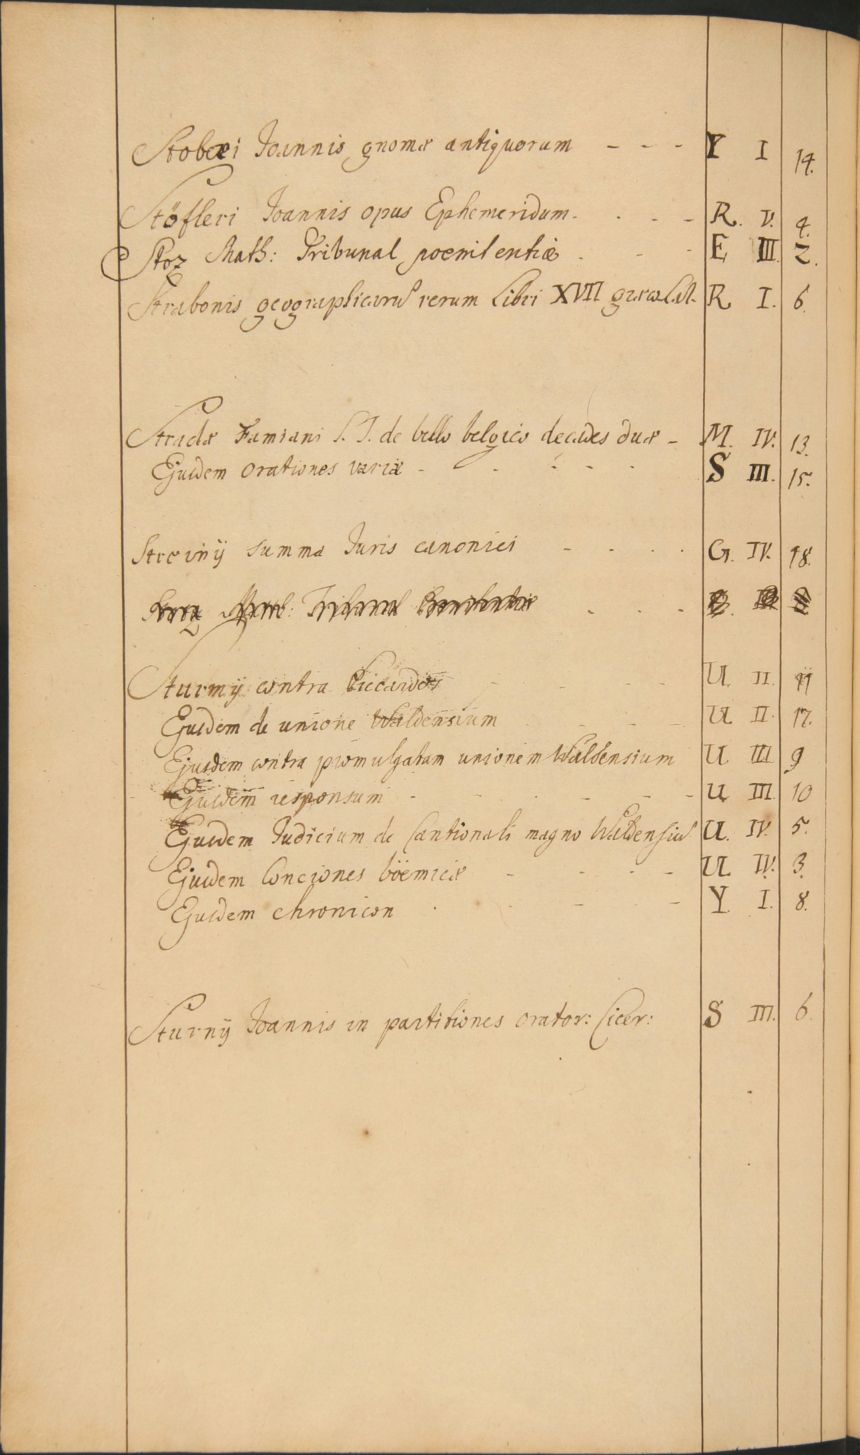 Stobæi Joannis gnomæ antiquorum - - - Y I 14.
Stöfleri Joannis opus Ephemeridum. . . - R. V. 4.
Stoz Math: Tribunal poenitentiæ . - - E III. 2.
Strabonis geographicarũ rerum Libri XVII R I. 6.
Stradæ Famiani S. J. de bello belgico decades duæ - M. IV. 13.
Ejusdem orationes variæ - - - - - S III. 15.
Streinÿ summa Juris canonici - - - . G. IV. 18.
Stoz Math: Tribunal . . -
Sturmÿ contra - - - U II. 11
Ejusdem de unione Waldensium - - - U II. 17.
Ejusdem contra promulgatam unionem Waldensium U. III 9
Ejusdem responsum - - - - - U III. 10
Ejusdem Judicium de Cantionali magno Waldensiũ U. IV. 5.
Ejusdem Conciones böemicæ - - - - U IV. 3.
Ejusdem chronicon . - - - Y. I. 8.
Sturnÿ Joannis in partitiones orator: Cicer: S III. 6.